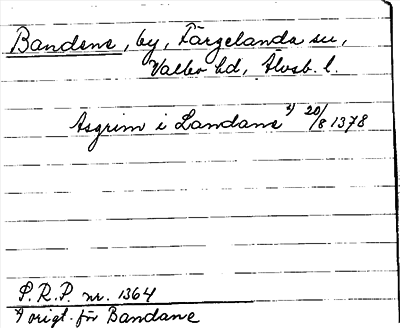 Bandene, by, Färgelanda su,
Valbo hd, Älvsb. l.
Asgrim i Landane 1) 20/8 1378
S.R.P. nr. 1364
1) origt. för Bandane